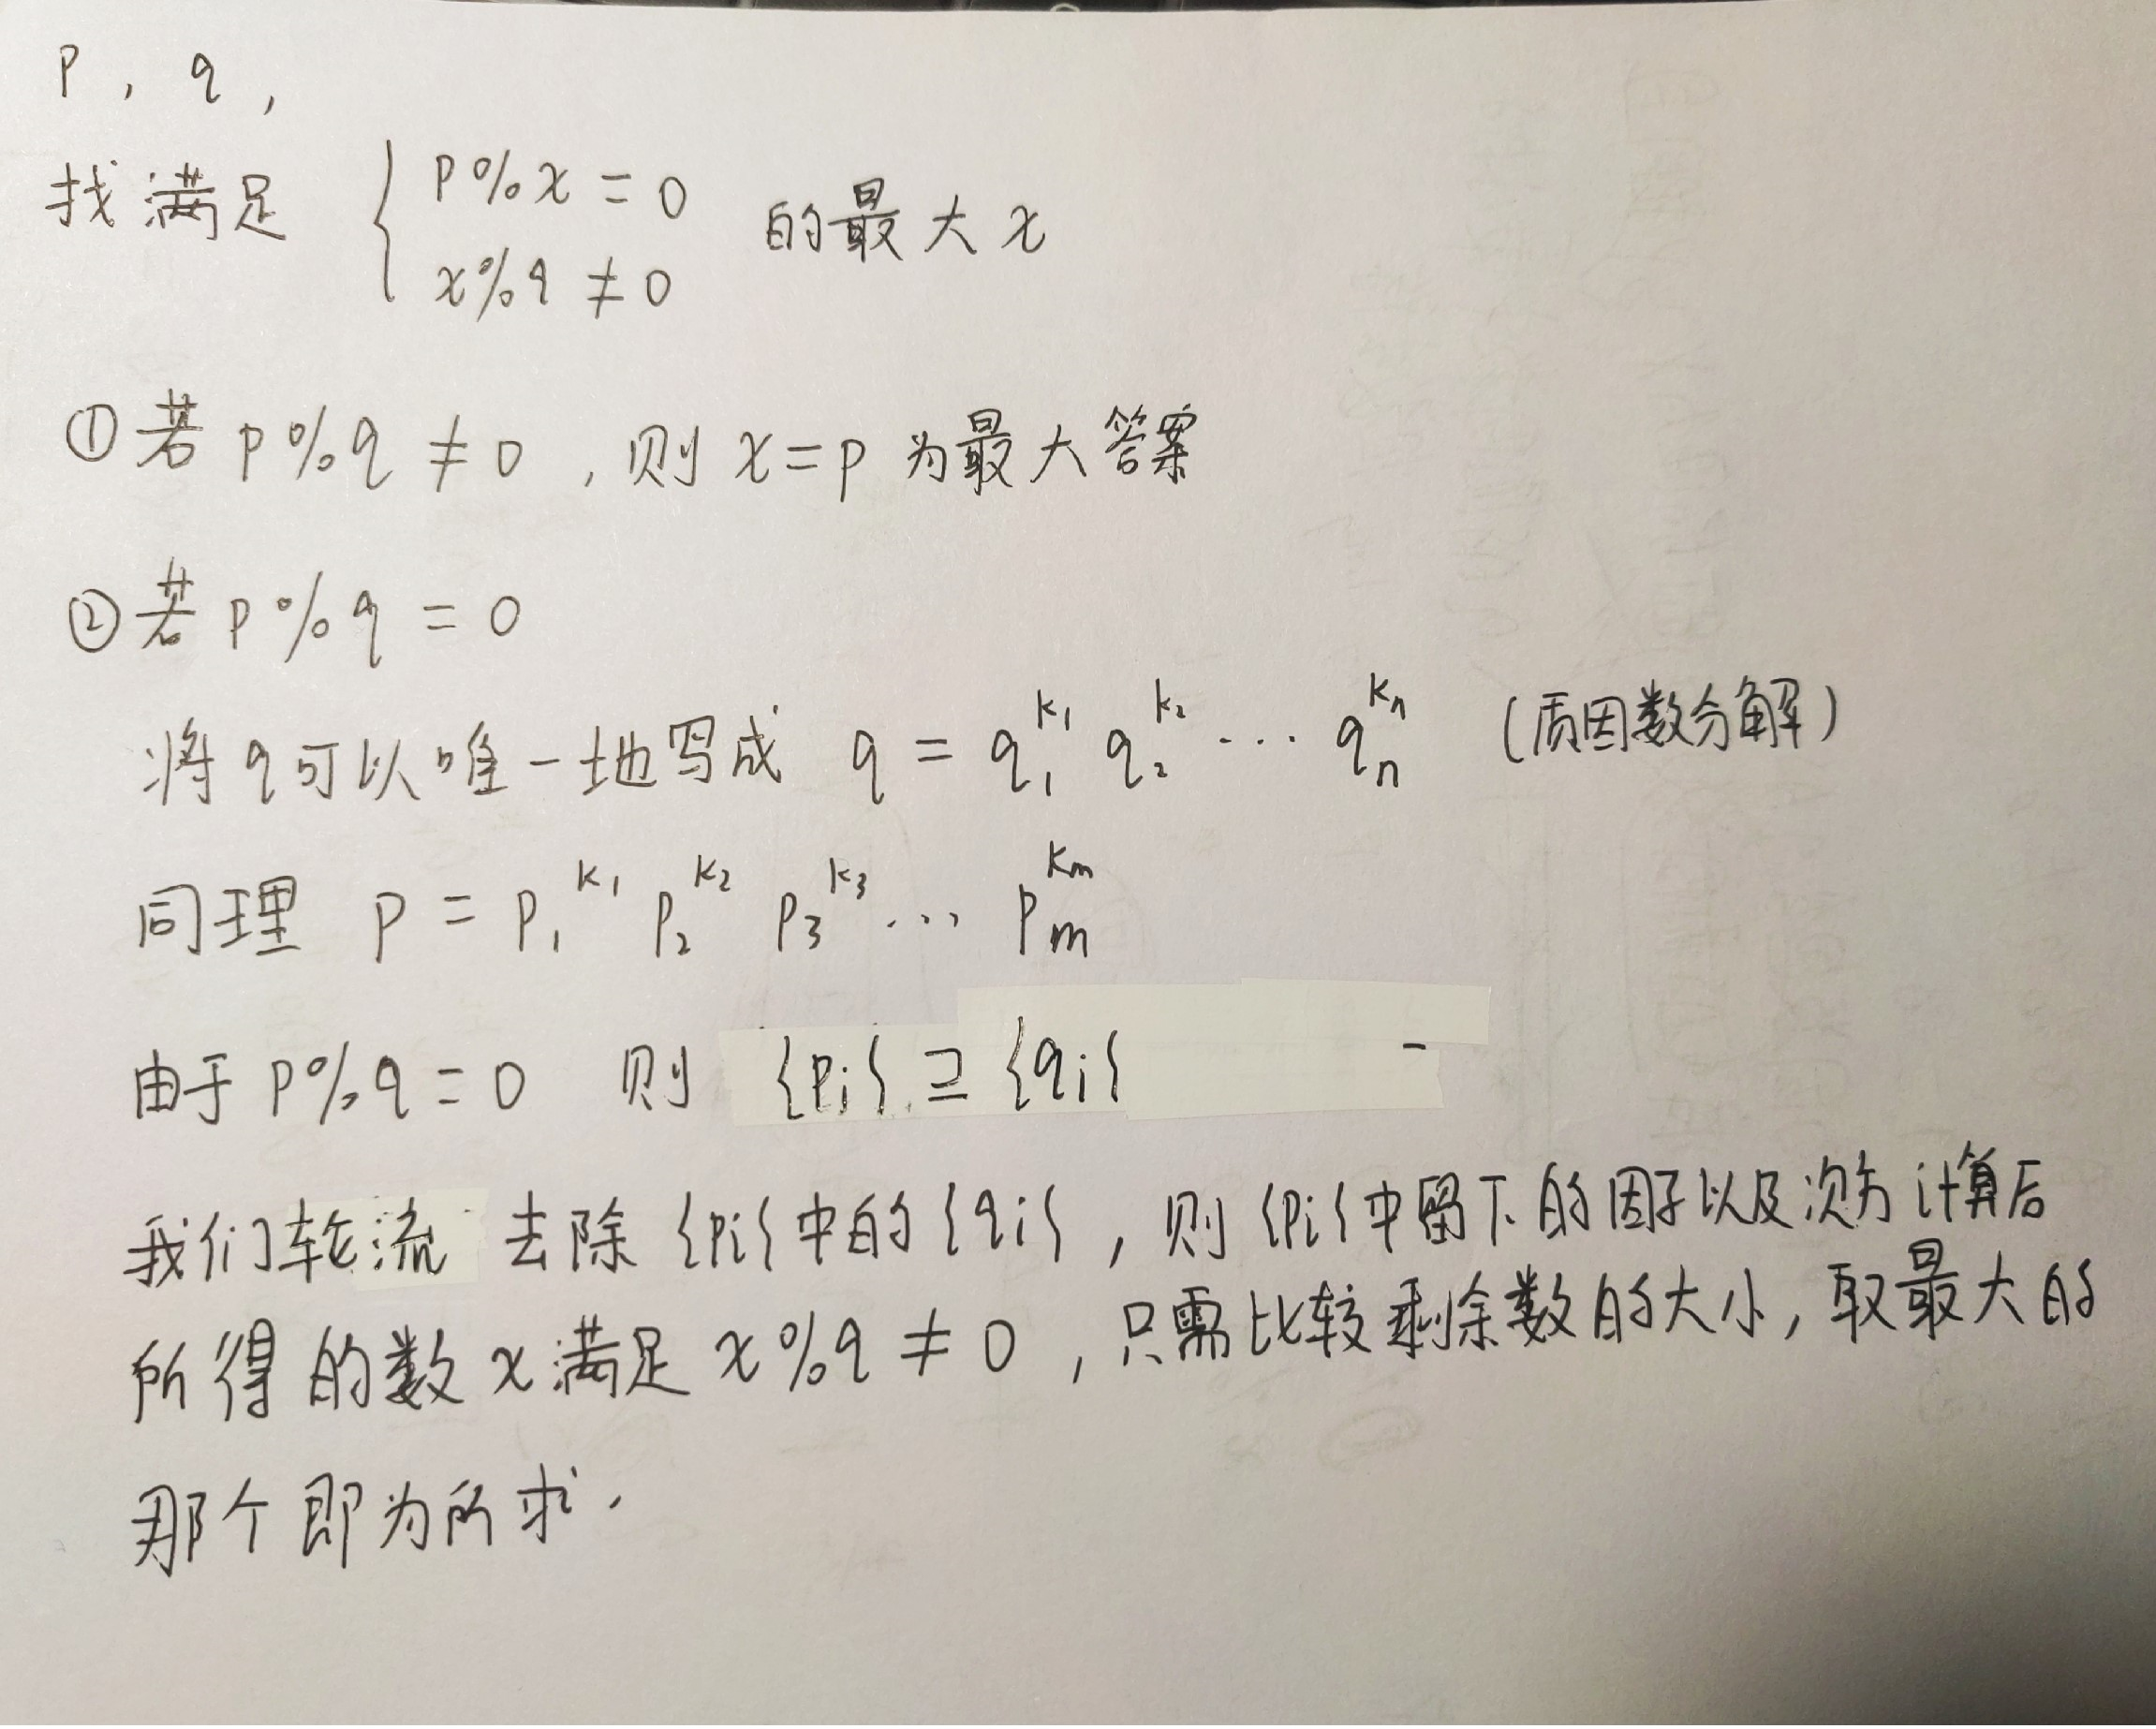 p , q ,
找满足 { p%x = 0 的最大x
x%q ≠ 0
①若 p%q ≠ 0 , 则 x=p 为最大答案
②若 p%q = 0
将q可以唯一地写成 q = q₁^k₁ q₂^k₂ ··· qₙ^kₙ (质因数分解)
同理 p = p₁^k₁ p₂^k₂ p₃^k₃ ··· pₘ^kₘ
由于 p%q = 0 则 {pi} ⊇ {qi}
我们轮流 去除 {pi} 中的 {qi} , 则 {pi} 中留下的因子以及次方计算后
所得的数 x 满足 x%q ≠ 0 , 只需比较剩余数的大小, 取最大的
那个即为所求.